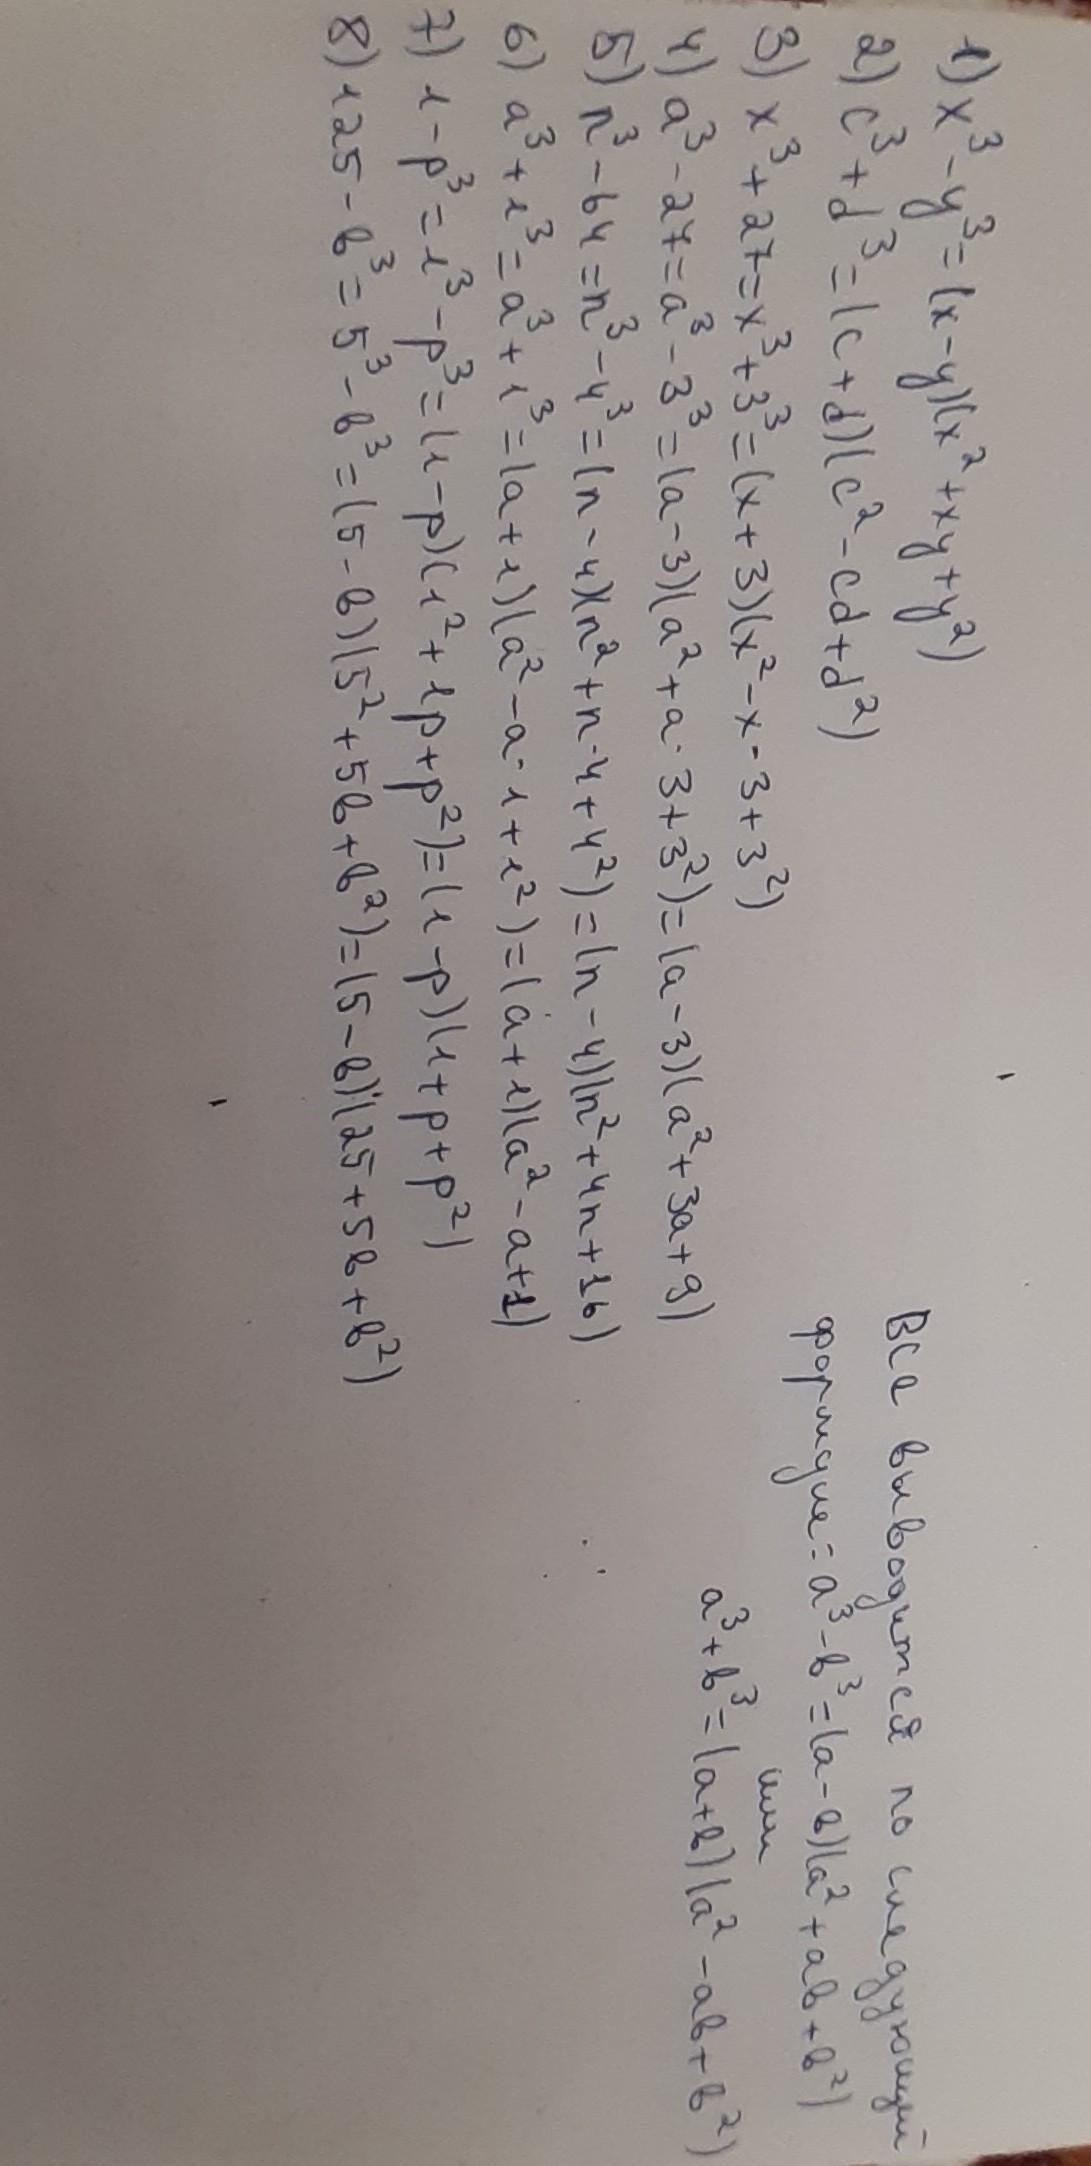 1) x³-y³=(x-y)(x²+xy+y²)
2) c³+d³=(c+d)(c²-cd+d²)
3) x³+27=x³+3³=(x+3)(x²-x·3+3²)
4) a³-27=a³-3³=(a-3)(a²+a·3+3²)=(a-3)(a²+3a+9)
5) n³-64=n³-4³=(n-4)(n²+n·4+4²)=(n-4)(n²+4n+16)
6) a³+1³=a³+1³=(a+1)(a²-a·1+1²)=(a+1)(a²-a+1)
7) 1-p³=1³-p³=(1-p)(1²+1p+p²)=(1-p)(1+p+p²)
8) 125-b³=5³-b³=(5-b)(5²+5b+b²)=(5-b)(25+5b+b²)
Все выводится по следующий
формуле: a³-b³=(a-b)(a²+ab+b²)
или
a³+b³=(a+b)(a²-ab+b²)